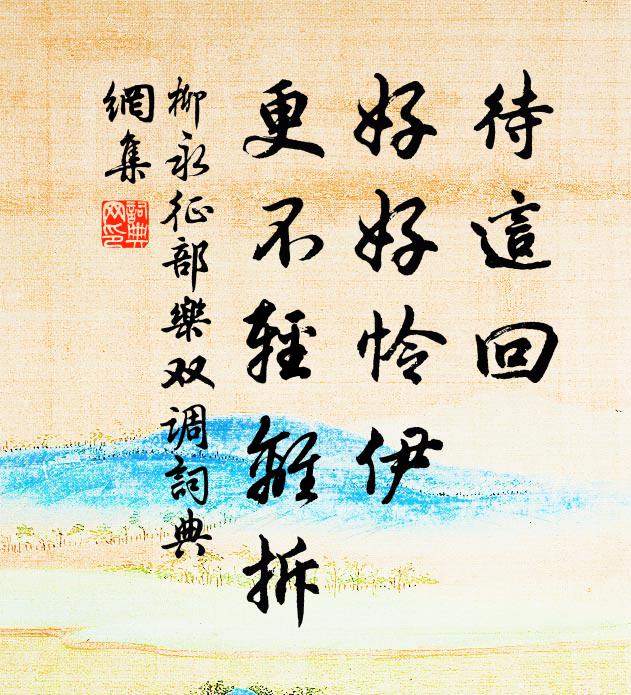 待這回
好好怜伊
更不輕離拆
柳永征部樂双调詞典
網集
詞典
网印